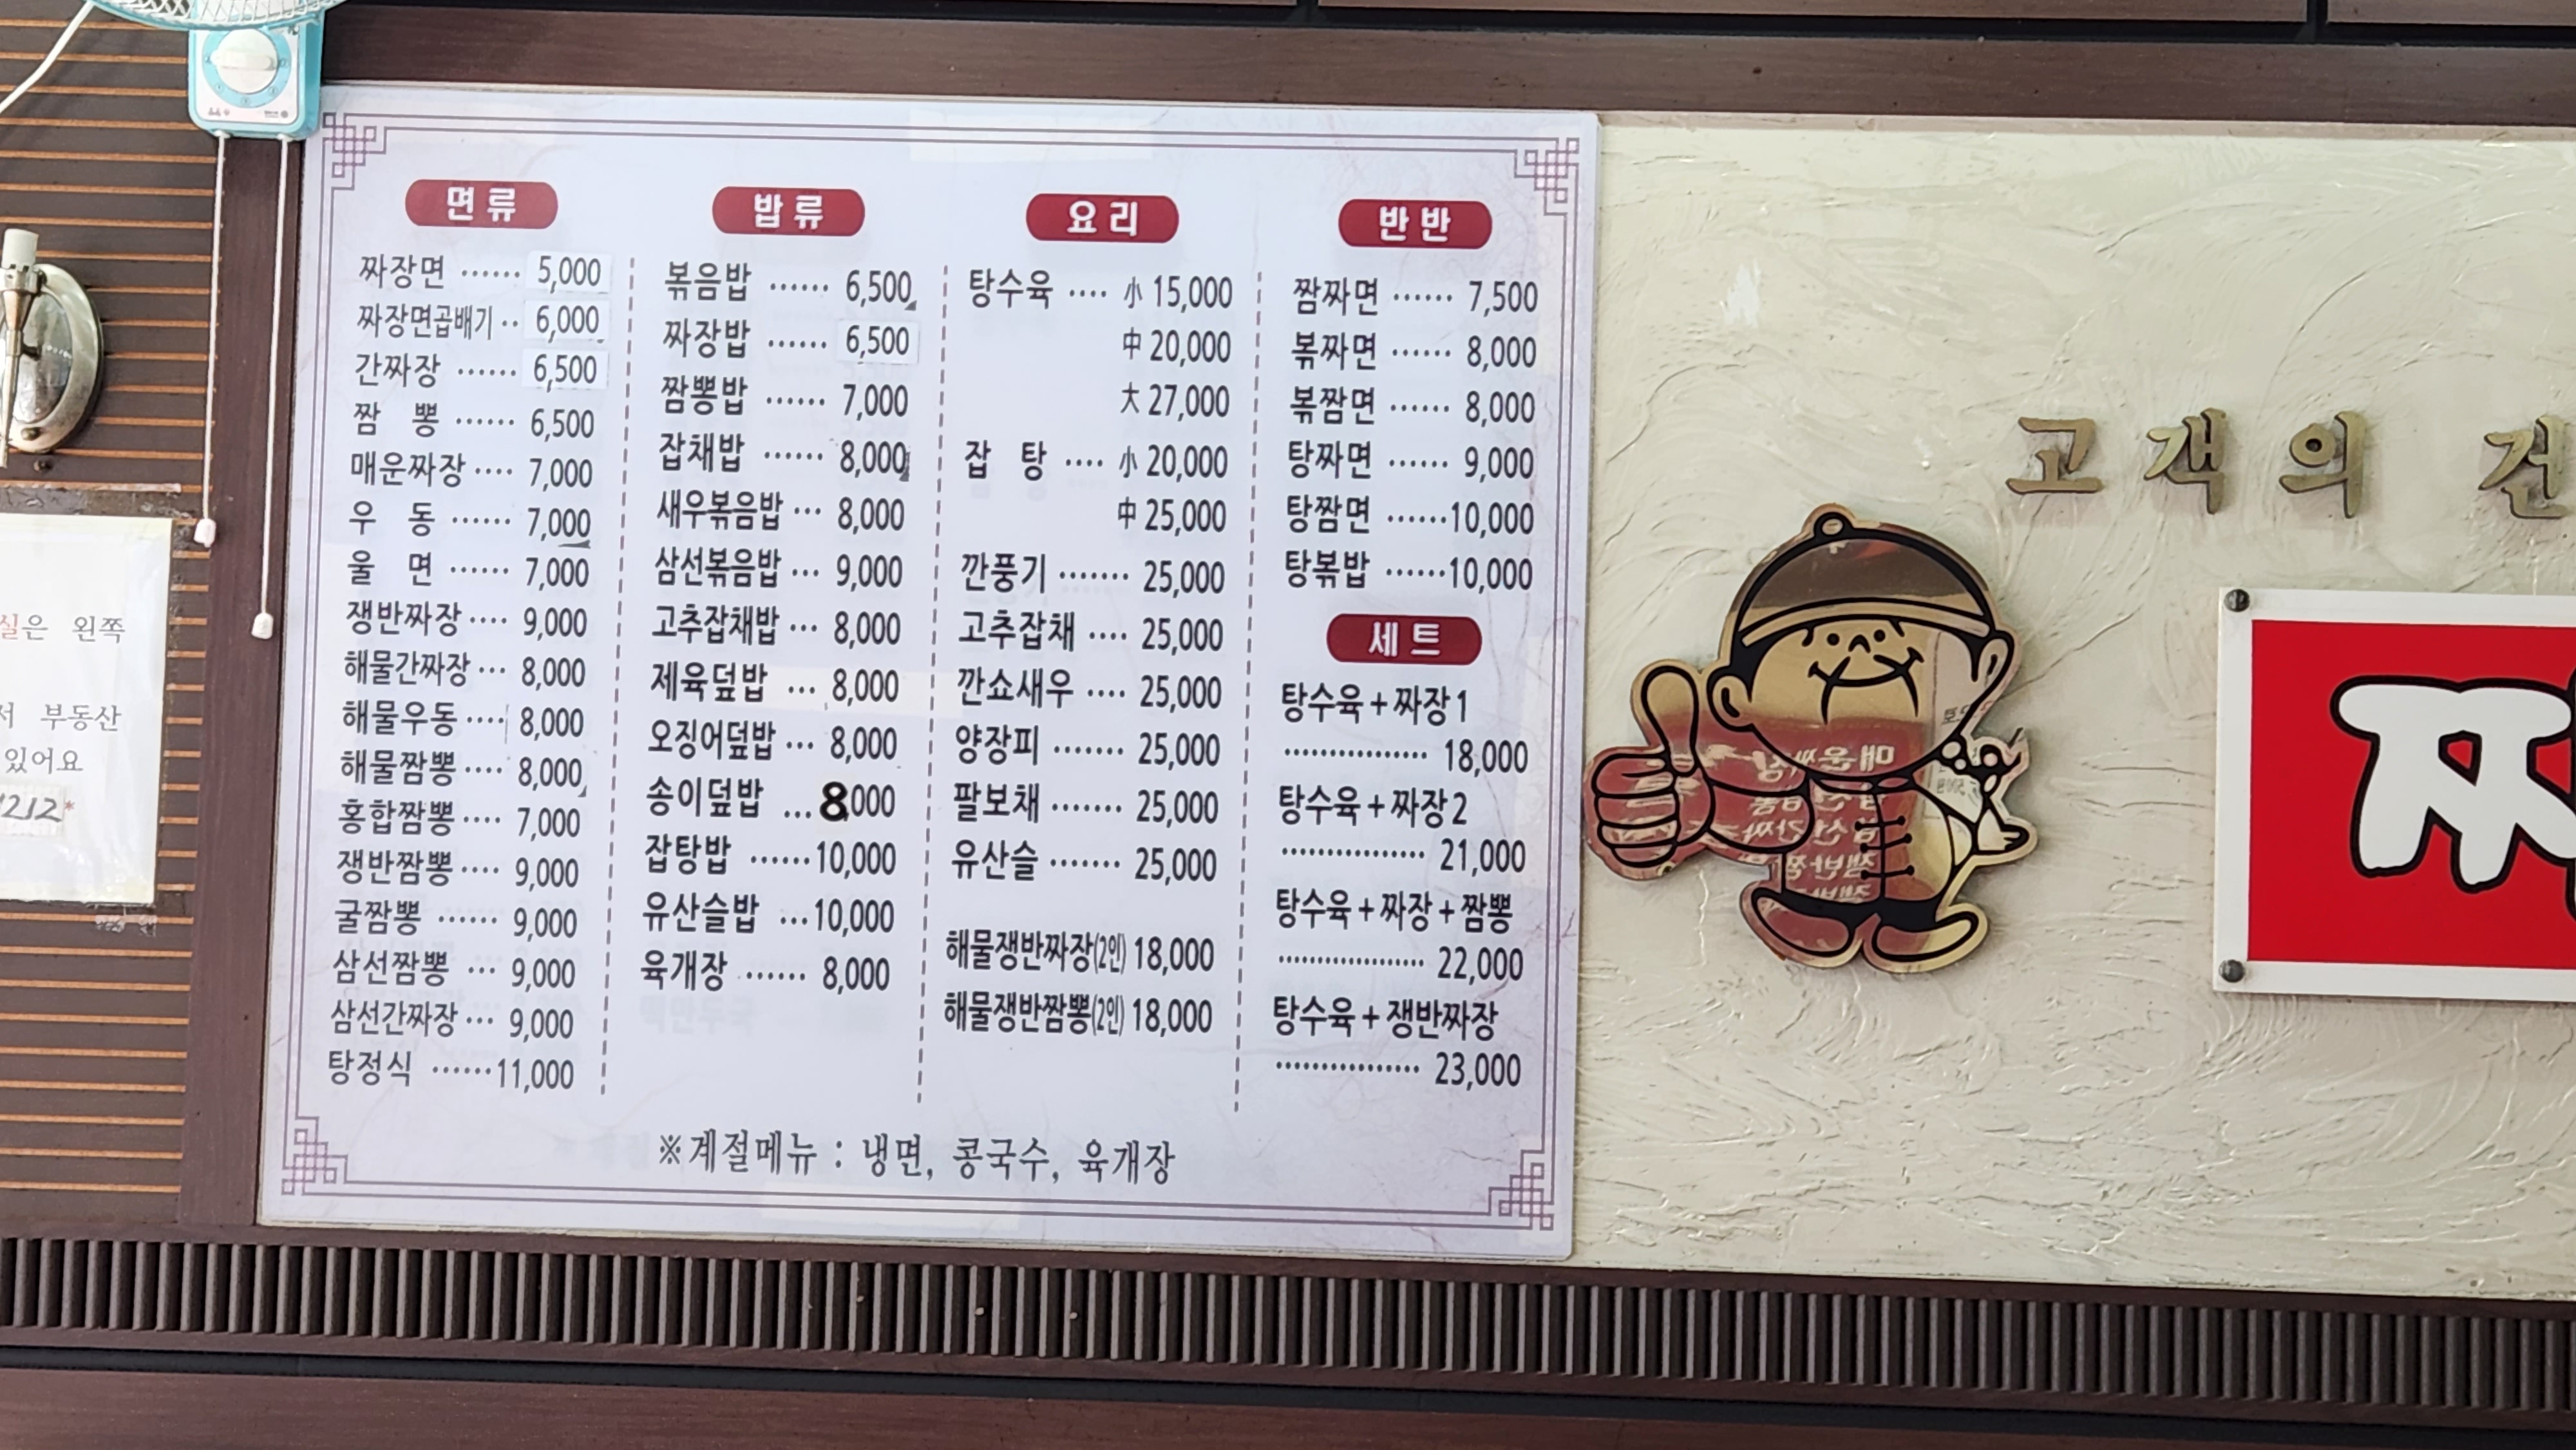 면류
짜장면 ······ 5,000
짜장면곱배기 ·· 6,000
간짜장 ······ 6,500
짬 뽕 ······ 6,500
매운짜장 ···· 7,000
우 동 ······ 7,000
울 면 ······ 7,000
쟁반짜장 ···· 9,000
해물간짜장 ··· 8,000
해물우동 ···· 8,000
해물짬뽕 ···· 8,000
홍합짬뽕 ···· 7,000
쟁반짬뽕 ···· 9,000
굴짬뽕 ······ 9,000
삼선짬뽕 ··· 9,000
삼선간짜장 ··· 9,000
탕정식 ······ 11,000
밥류
볶음밥 ······ 6,500
짜장밥 ······ 6,500
짬뽕밥 ······ 7,000
잡채밥 ······ 8,000
새우볶음밥 ··· 8,000
삼선볶음밥 ··· 9,000
고추잡채밥 ··· 8,000
제육덮밥 ... 8,000
오징어덮밥 ··· 8,000
송이덮밥 ... 8,000
잡탕밥 ······ 10,000
유산슬밥 ··· 10,000
육개장 ······ 8,000
요리
탕수육 ···· 小 15,000
中 20,000
大 27,000
잡 탕 ···· 小 20,000
中 25,000
깐풍기 ······· 25,000
고추잡채 ···· 25,000
깐쇼새우 ···· 25,000
양장피 ······· 25,000
팔보채 ······· 25,000
유산슬 ······· 25,000
해물쟁반짜장(2인) 18,000
해물쟁반짬뽕(2인) 18,000
반반
짬짜면 ······ 7,500
볶짜면 ······ 8,000
볶짬면 ······ 8,000
탕짜면 ······ 9,000
탕짬면 ······ 10,000
탕볶밥 ······ 10,000
세트
탕수육 + 짜장1
················ 18,000
탕수육 + 짜장2
················ 21,000
탕수육 + 짜장 + 짬뽕
················ 22,000
탕수육 + 쟁반짜장
················ 23,000
※계절메뉴 : 냉면, 콩국수, 육개장
실은 왼쪽
서 부동산
있어요
1212*
고객의 건